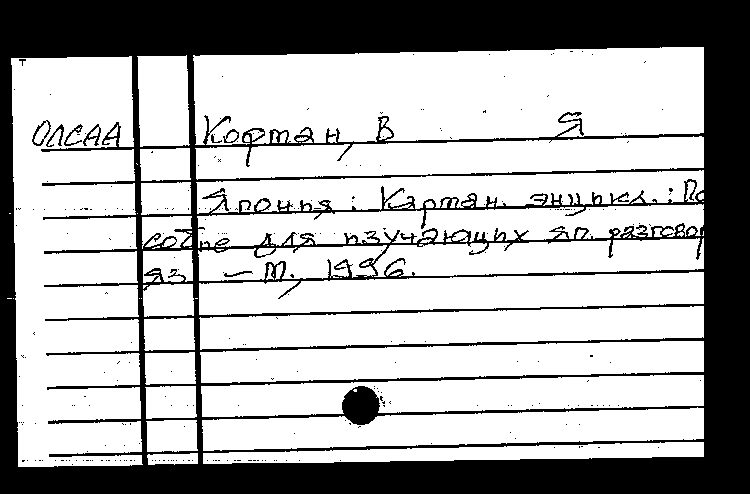 ОЛСАА Кофман, В Я
Япония : Карман. энцикл. : По
собие для изучающих яп. разговор
яз. – М., 1996.